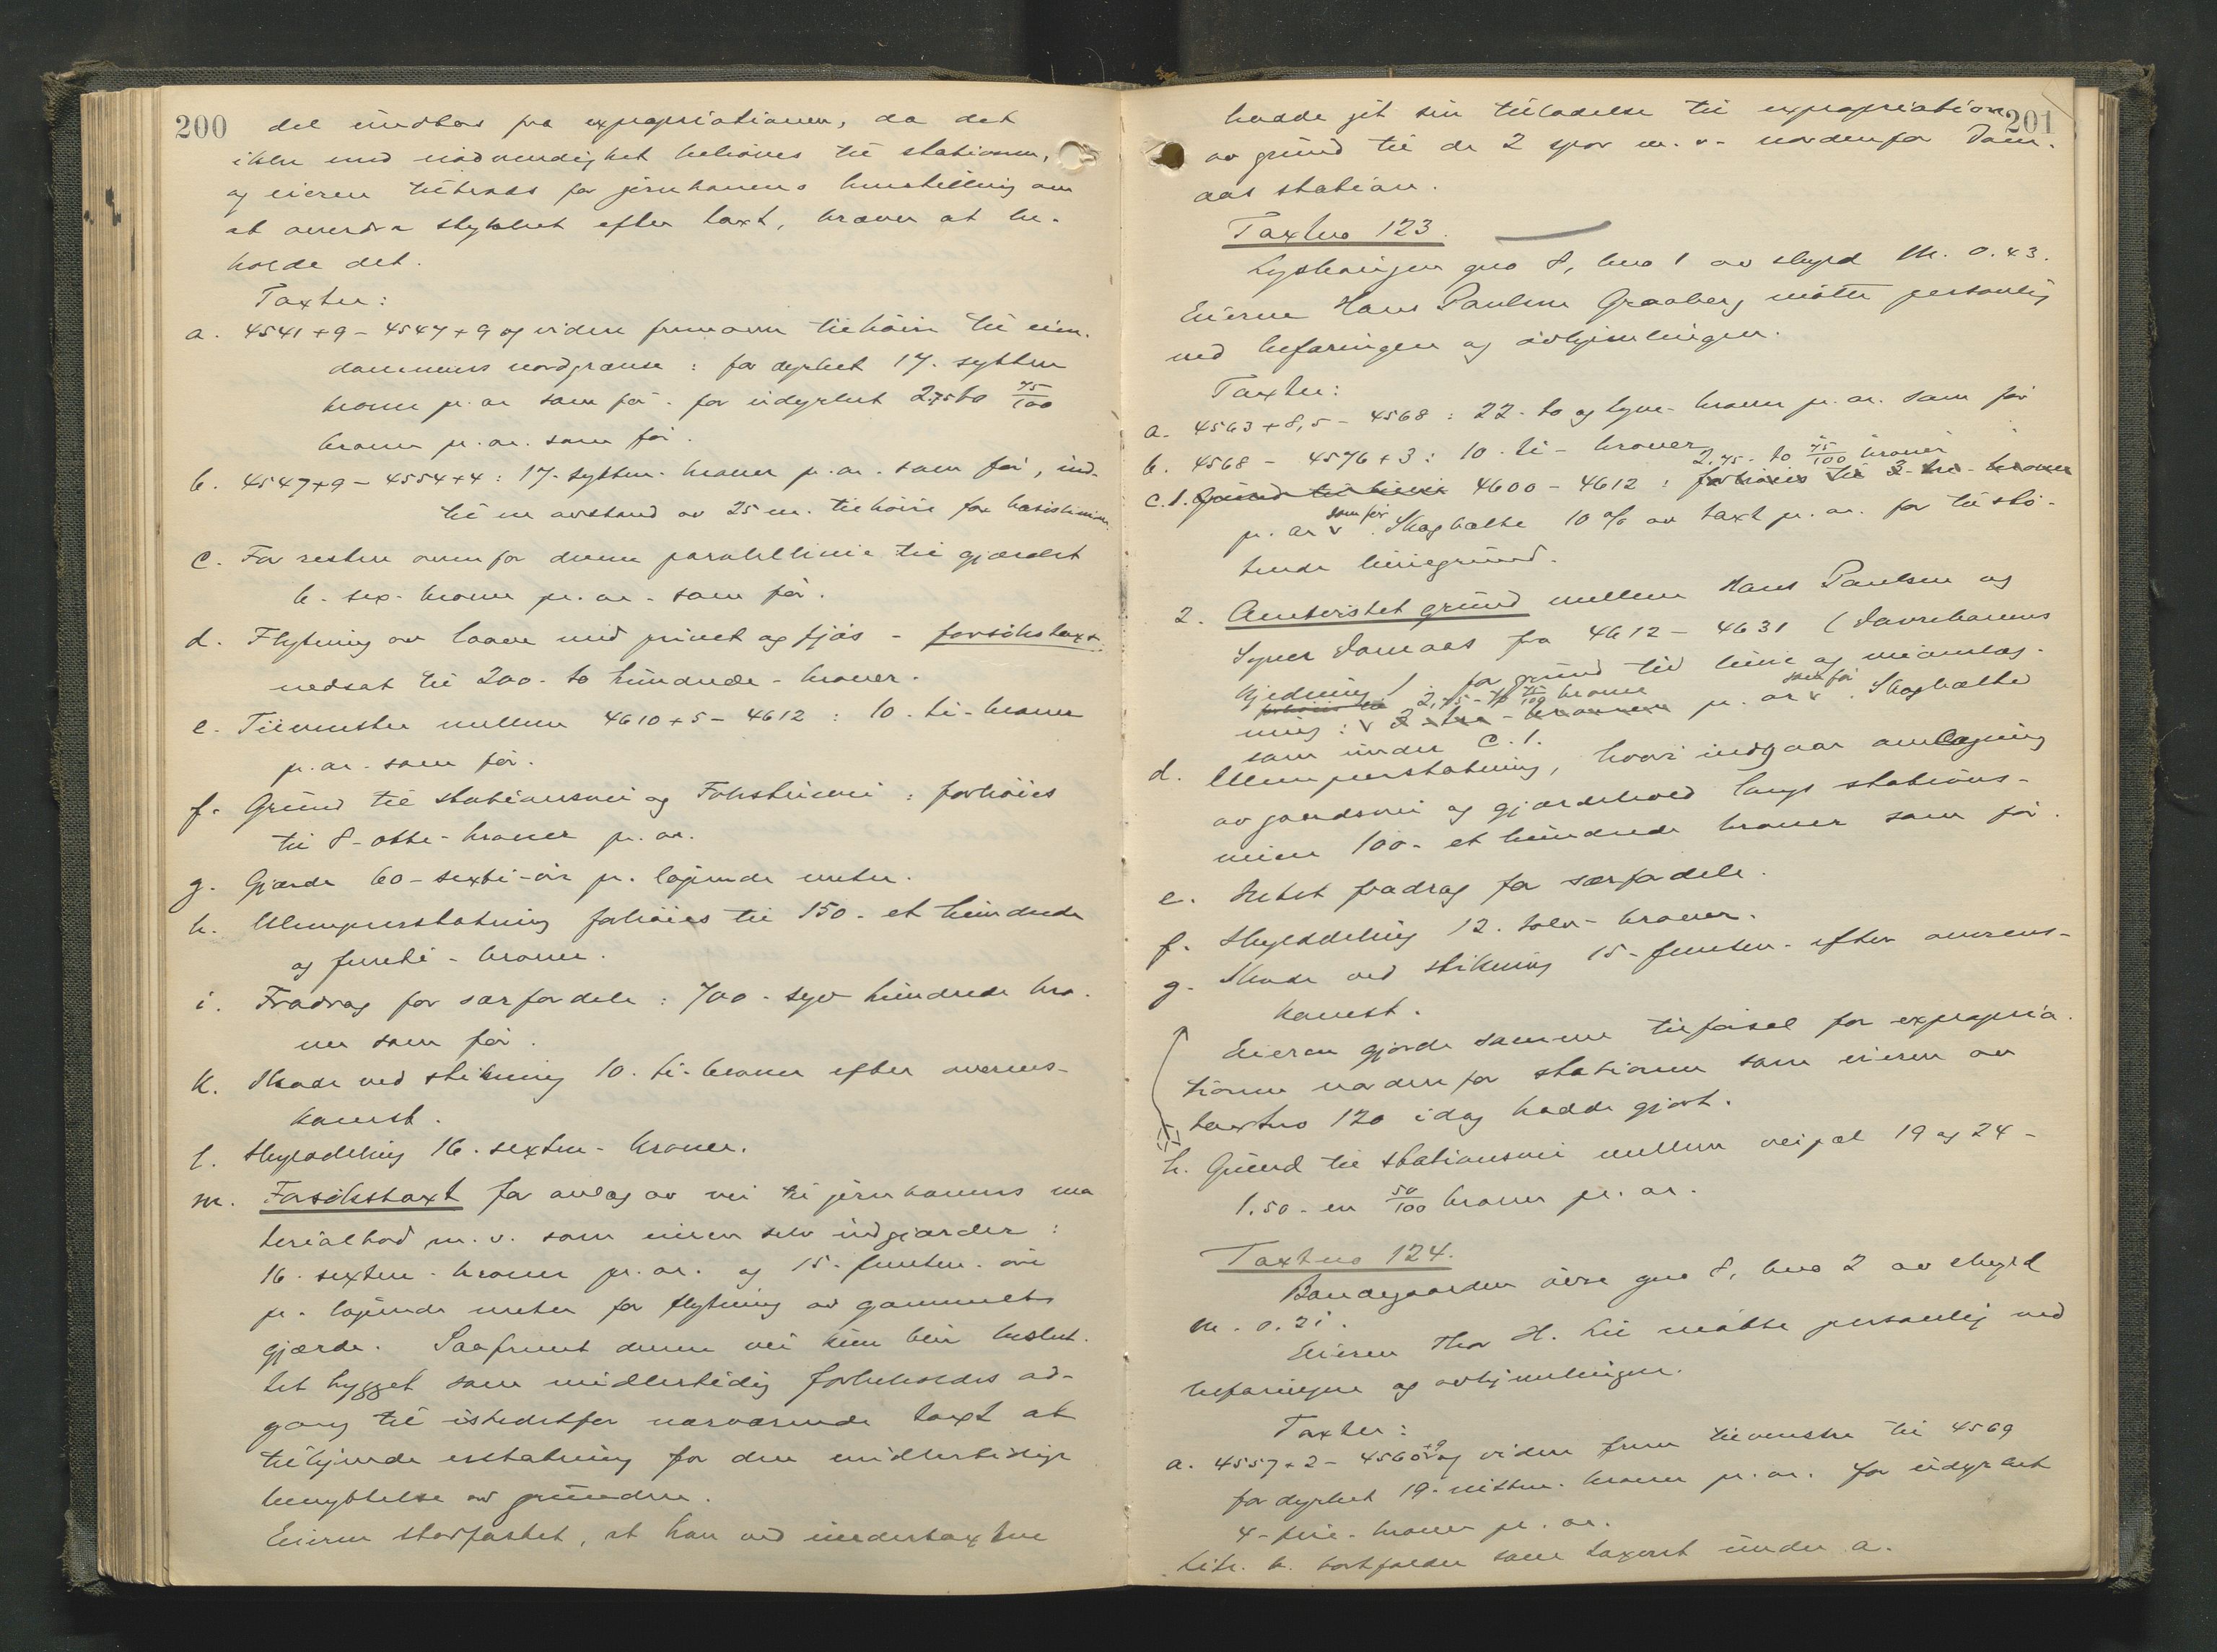 200
del undtas fra expropriationen, da det
ikke med nødvendighet behøves til stationen,
og eieren tiltrods for jernbanens henstilling om
at overdra stykket efter taxt, kræver at be-
holde det.
Taxter:
a. 4541+9 - 4547+9 og videre fremover tilhøire til eien-
dommens nordgrænse: for dyrket 17. sytten
kroner pr. ar som før. for udyrket 2.75 to 75/100
kroner pr. ar. som før.
b. 4547+9 - 4554+4: 17. sytten. kroner pr. ar. som før, ind-
til en avstand av 25 m. tilhøire for basislinien.
c. For resten ovenfor denne parallellinie til gjærdet
6. sex. kroner pr. ar. som før.
d. Flytning av laave med privet og fjøs - forsøkstaxt
nedsat til 200. to hundrede - kroner.
e. Tilvenstre mellem 4610+5 - 4612: 10. ti-kroner
pr. ar. som før.
f. Grund til stationsvei og Fokstuvei: forhøies
til 8 - otte - kroner pr. ar.
g. Gjærde 60 - sexti - øre pr. løpende meter.
h. Ulempeerstatning forhøies til 150 - et hundrede
og femti - kroner.
i. Fradrag for særfordele: 700 - syv hundrede kro-
ner som før.
k. Skade ved stikning 10. ti-kroner efter overens-
komst.
l. Skylddeling 16. sexten - kroner.
m. Forsøkstaxt for anlæg av vei til jernbanens ma
terialbod m. v. som eieren selv indgjærder:
16. sexten - kroner pr. ar. og 15. femten. øre
pr. løpende meter for flytning av gammelt
gjærde. Saafremt denne vei kun blir beslut-
tet bygget som midlertidig forbeholdes ad-
gang til istedetfor nærværende taxt at
tilkjende erstatning for den midlertidige
benyttelse av grunden.
Eieren stadfæstet, at han ved undertaxten
201
hadde git sin tilladelse til expropriation
av grund til de 2 spor m. v. nordenfor Dom-
aas station.
Taxtno 123.
gno 8, bno 1 av skyld M. 0.43.
Eieren Hans Paulsen Graaberg møtte personlig
ved befaringen og avhjemlingen.
Taxter:
a. 4563+8,5 - 4568: 22. to og tyve - kroner pr. ar. som før
b. 4568 - 4576+3: 10. ti - kroner "
2.75. to 75/100 kroner
c. 1. Grund til linie 4600 - 4612: forhøies til 3 - tre - kroner
pr. ar som før. Skogbælte 10 % av taxt pr. ar. for tilstø-
tende liniegrund.
2. Omtvistet grund mellem Hans Paulsen og
Syver Domaas fra 4612 - 4631 (Dovrebanens
kjedning) for grund til linie og veiomlæg-
forhøies til 2,75 - to 75/100 kroner
ning: 3 - tre - kroner pr. ar som før. Skogbælte
som under c. 1.
d. Ulempeerstatning, hvori indgaar omlægning
av gaardsvei og gjærdehold langs stations-
veien 100 - et hundrede kroner som før.
e. Intet fradrag for særfordele.
f. Skylddeling 12. tolv - kroner.
g. Skade ved stikning 15 - femten - efter overens-
komst.
Eieren gjorde samme tilføisel for expropria-
tionen nordenfor stationen som eieren av
taxtno 120 idag hadde gjort.
h. Grund til stationsvei mellem veipæl 19 og 24 -
1.50 - en 50/100 kroner pr. ar.
Taxtno 124.
Bondegaarden øvre gno 8, bno 2 av skyld
m. 0.21.
Eieren Thor H. Lie møtte personlig ved
befaringen og avhjemlingen.
Taxter:
a. 4557+2 - 4560+9 og videre frem tilvenstre til 4569
for dyrket 19. nitten. kroner pr. ar. for udyrket
4 - fire - kroner pr. ar.
Litr. b. bortfalder som taxeret under a.